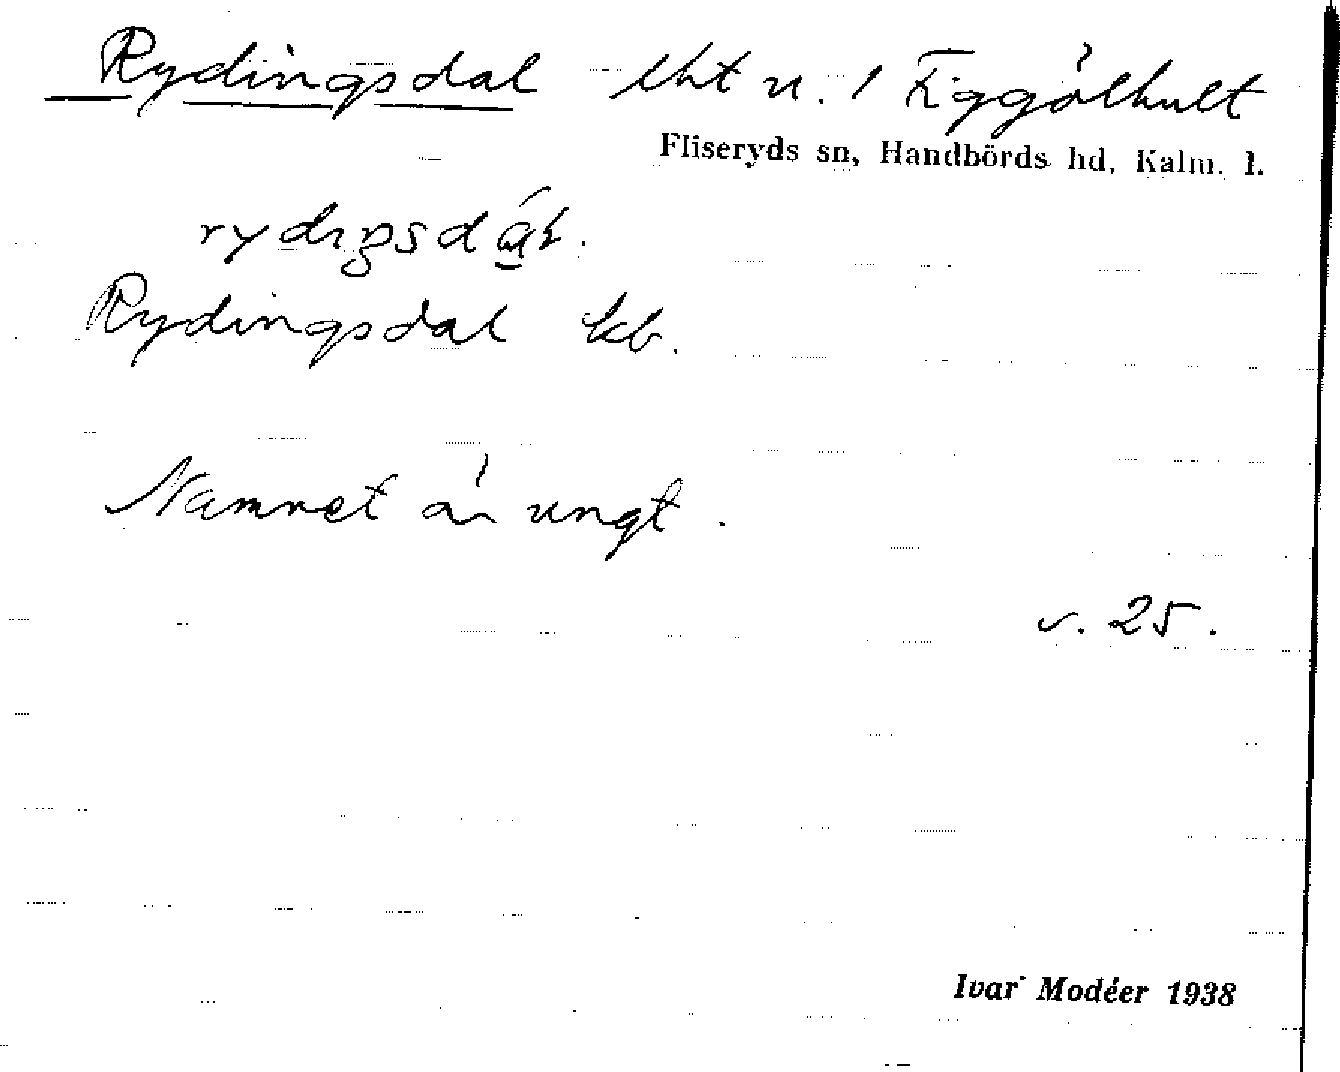 Rydingsdal lht u. / Eggölhult
Fliseryds sn, Handbörds hd, Kalm. l.
Rydingsdal kb.
Namnet är ungt.
v. 25.
Ivar Modéer 1938